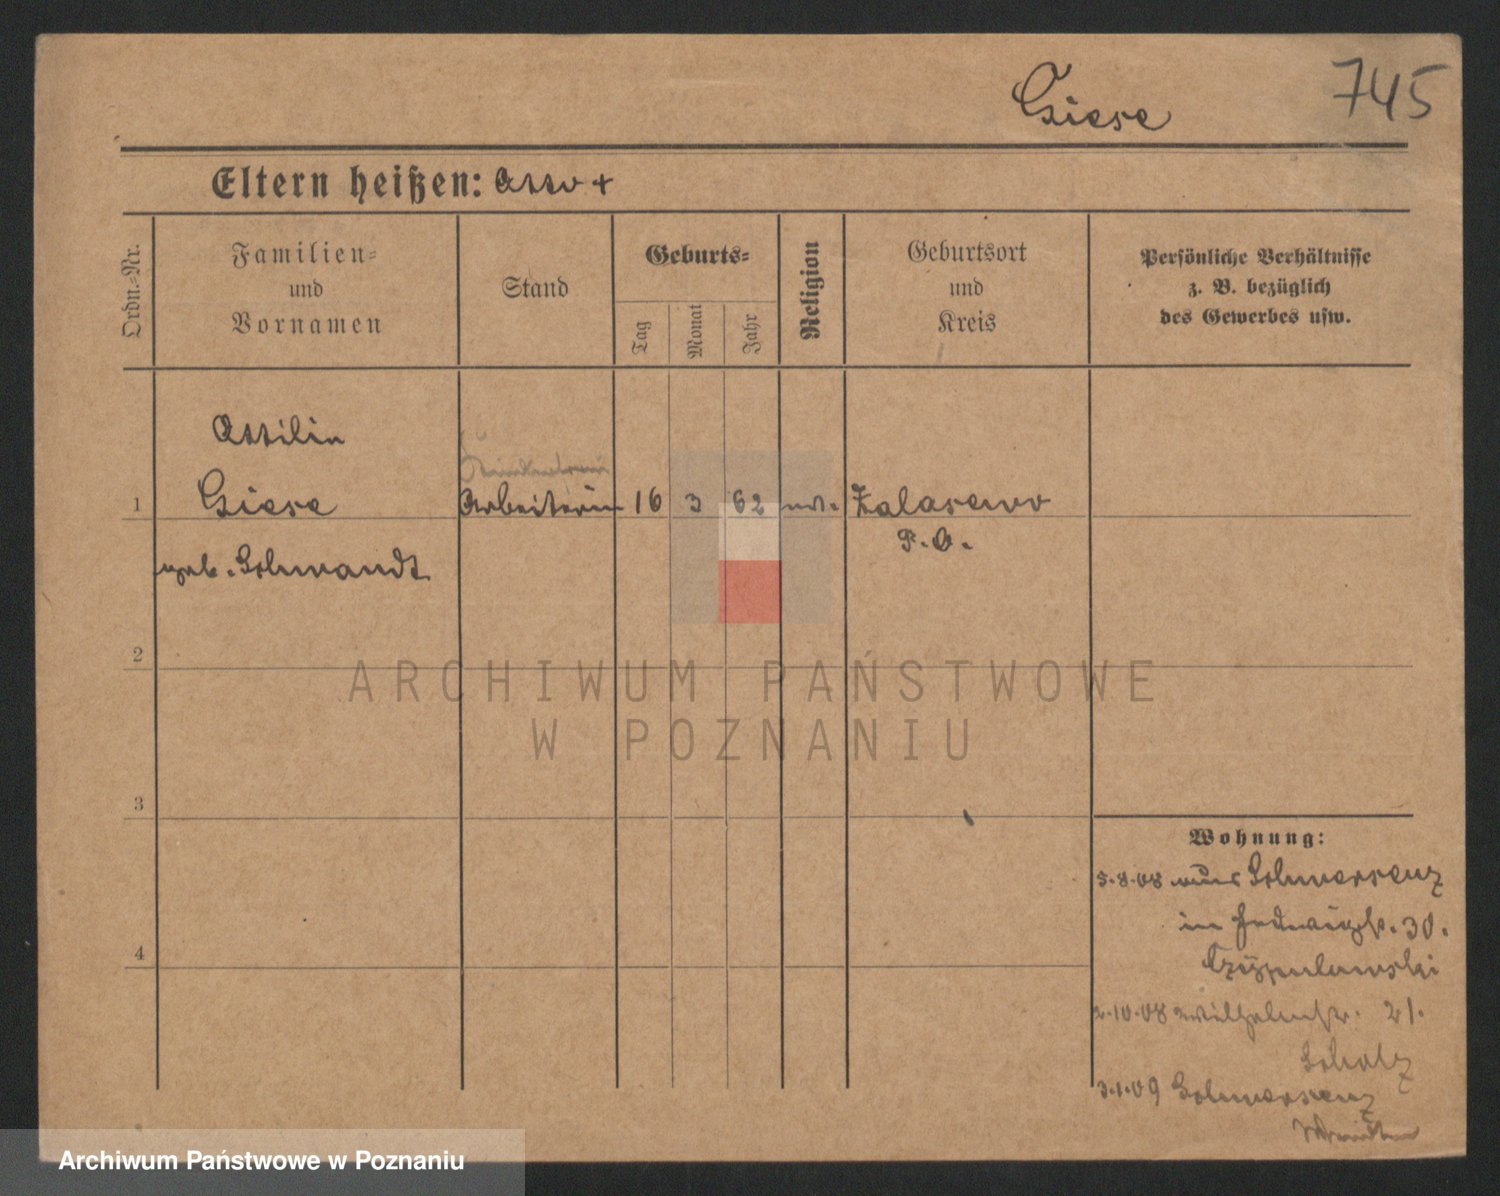 Giese
745
Eltern heißen: Otto +
Ordn.-Nr.
Familien-
und
Vornamen
Stand
Geburts-
Tag
Monat
Jahr
Religion
Geburtsort
und
Kreis
Persönliche Verhältnisse
z. B. bezüglich
des Gewerbes usw.
Ottilie
1 Giese Arbeiterin 16 3 62 Zalasewo
P. O.
geb. Schwandt
2
3
4
Wohnung:
5.8.08 aus Schwersenz
in Hedwigstr. 30.
2.10.08 Wilhelmstr. 21.
Scholz
3.1.09 Schwersenz
ARCHIWUM PAŃSTWOWE
W POZNANIU
Archiwum Państwowe w Poznaniu